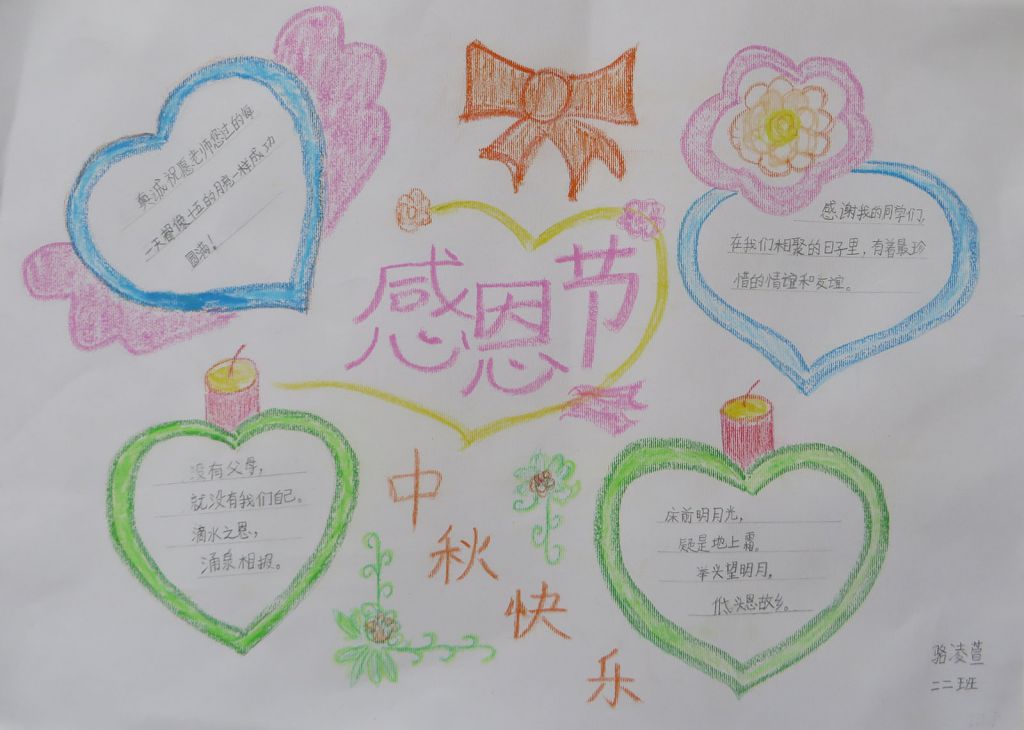 真诚祝愿老师您过的每
一天都像十五的月亮一样成功
圆满!
感恩节
感谢我的同学们,
在我们相聚的日子里,有着最珍
惜的情谊和友谊。
没有父母,
就没有我们自己。
滴水之恩,
涌泉相报。
中
秋
快
乐
床前明月光,
疑是地上霜。
举头望明月,
低头思故乡。
骆凌萱
二二班